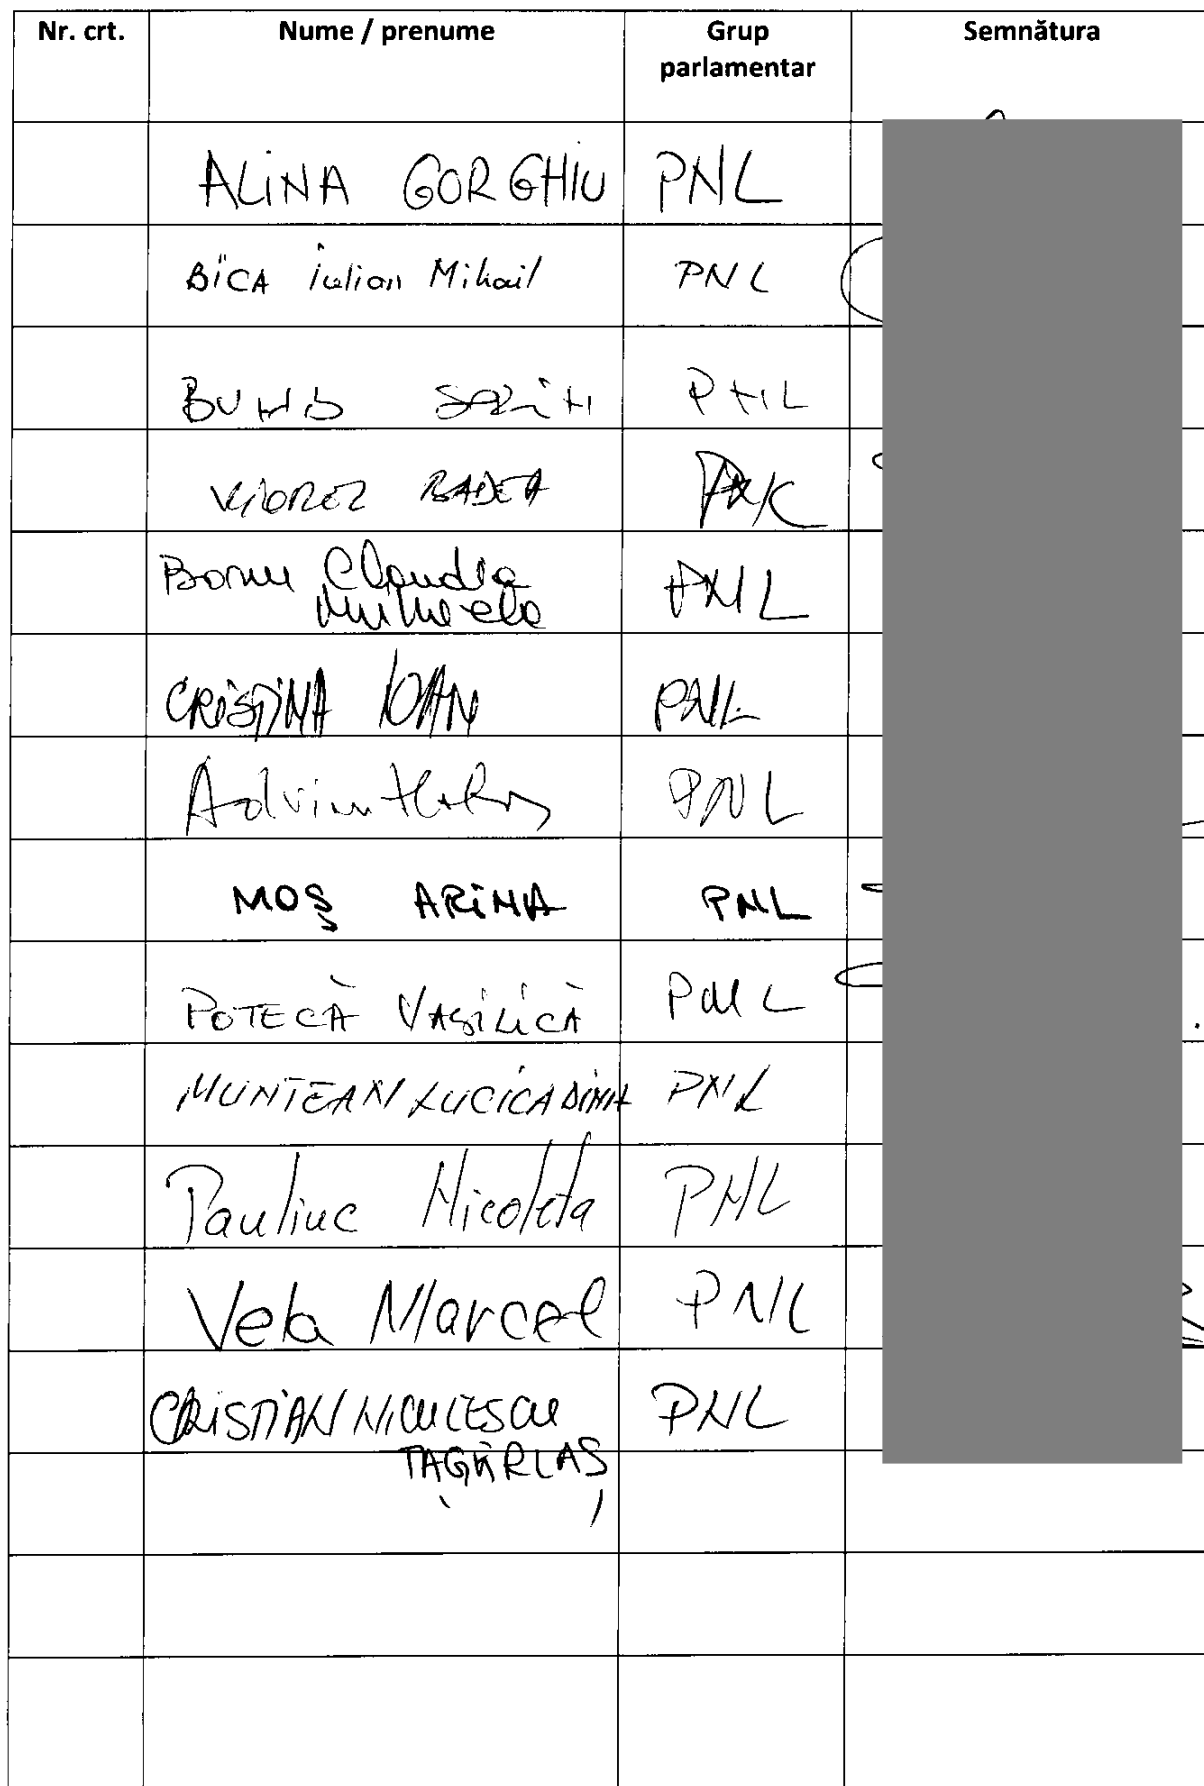 Nr. crt. Nume / prenume Grup parlamentar Semnătura
ALINA GORGHIU PNL
BICA Iulian Mihail PNL
SORIN PNL
VIOREL BADEA PNL
Claudia PNL
Mihaela
CRISTINA IOAN PNL
PNL
MOȘ ARINA PNL
POTECĂ VASILICĂ PNL
MUNTEAN LUCICA DINA PNL
Pauliuc Nicoleta PNL
Vela Marcel PNL
CRISTIAN NICULESCU PNL
ȚAGÂRLAȘ